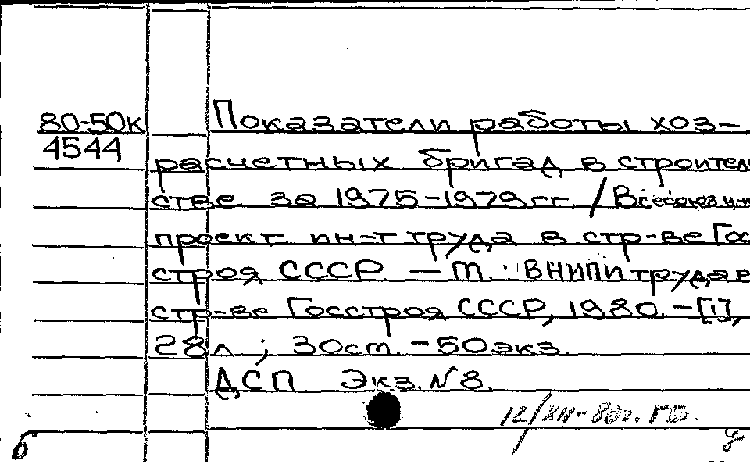 80-50К
4544
Показатели работы хоз-
расчетных бригад в строитель
стве за 1975-1979 гг. / Всесоюз н.-и.
проект. ин-т труда в стр-ве Гос
строя СССР. — М.: ВНИПИ труда в
стр-ве Госстроя СССР, 1980. - [1],
28 л.; 30 см. - 50 экз.
ДСП Экз. № 8.
12/XII-80г.
б